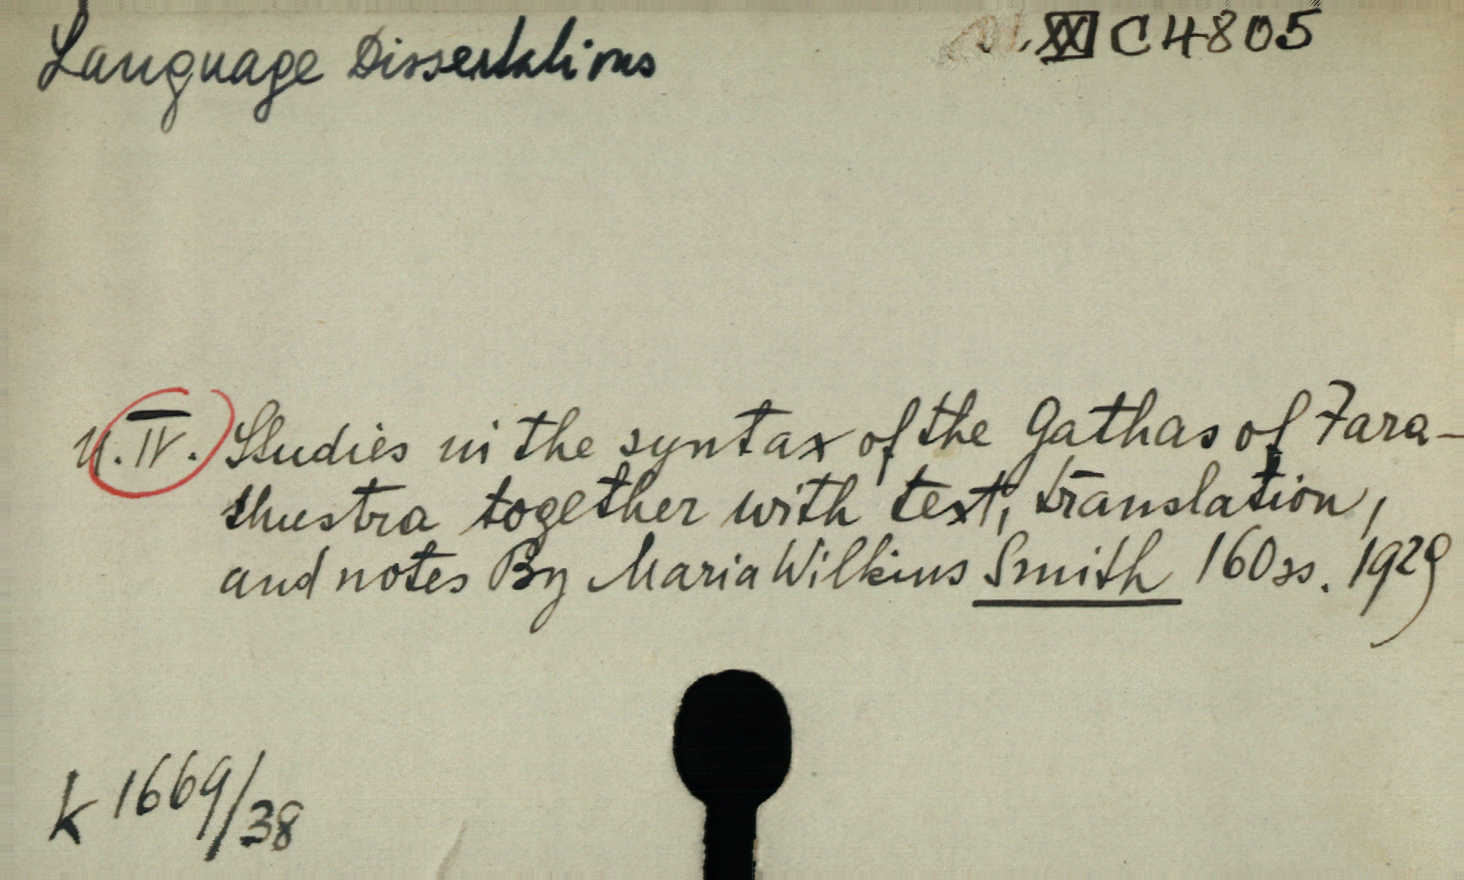 Language Dissertations
XX C 4805
N. IV. Studies in the syntax of the Gathas of Zara-
thustra together with text, translation,
and notes By Maria Wilkins Smith 160 ss. 1929
K 1669/38